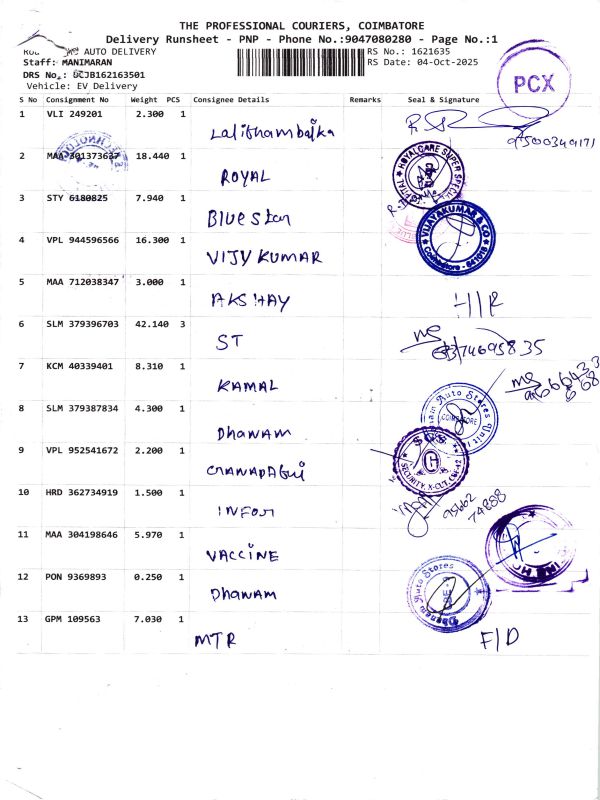 THE PROFESSIONAL COURIERS, COIMBATORE
Delivery Runsheet - PNP - Phone No.:9047080280 - Page No.:1
AUTO DELIVERY RS No.: 1621635
Staff: MANIMARAN RS Date: 04-Oct-2025
DRS No.: DCJB162163501
Vehicle: EV Delivery
PCX
S No Consignment No Weight PCS Consignee Details Remarks Seal & Signature
1 VLI 249201 2.300 1 Lalithambaika
2 MAA 301373637 18.440 1 ROYAL
3 STY 6180825 7.940 1 Bluestar
VIJAYAKUMAR & CO
4 VPL 944596566 16.300 1 VIJYKUMAR
5 MAA 712038347 3.000 1 AKSHAY H/R
6 SLM 379396703 42.140 3 ST
7 KCM 40339401 8.310 1 KAMAL
8 SLM 379387834 4.300 1 DHANAM
COIMBATORE
9 VPL 952541672 2.200 1
SGS
G
10 HRD 362734919 1.500 1
95662
74888
11 MAA 304198646 5.970 1 VACCINE
12 PON 9369893 0.250 1 DHANAM
Dhanam Auto Stores
13 GPM 109563 7.030 1 MTR F/D